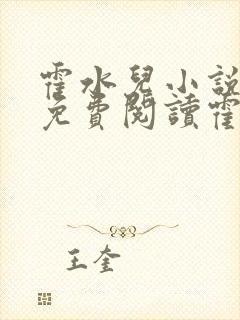 霍水兒小說
免費閱讀霍
王奎